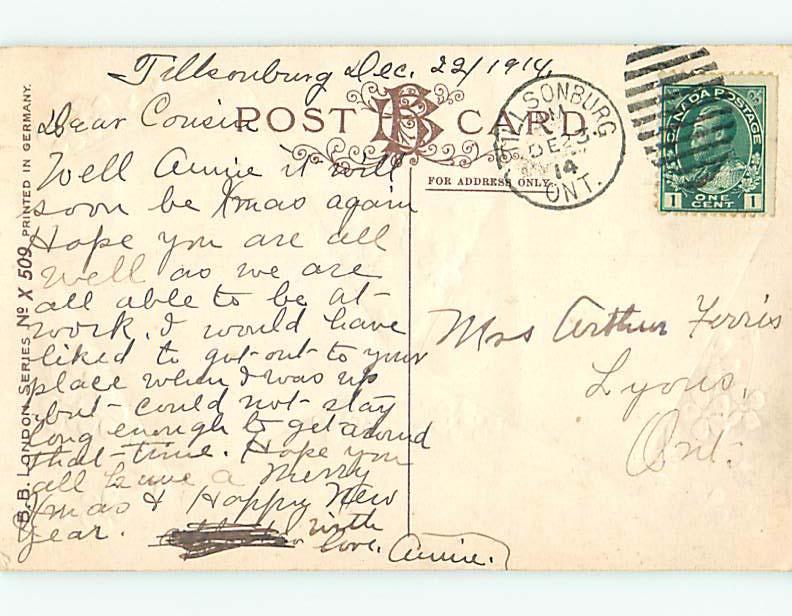 Tillsonburg Dec. 22/1914.
Dear Cousin
POST CARD
FOR ADDRESS ONLY.
TILLSONBURG
PM
DE 23
14
ONT.
CANADA POSTAGE
1 ONE CENT 1
Well Annie it will
soon be Xmas again
Hope you are all
well as we are
all able to be at
work. I would have
liked to got out to your
place when I was up
but could not stay
long enough to get around
that time. Hope you
all have a Merry
Xmas & Happy New
Year. with
love. Annie.
Mrs Arthur Ferris
Lyons,
Ont.
B.B. LONDON. SERIES No X 509 PRINTED IN GERMANY.